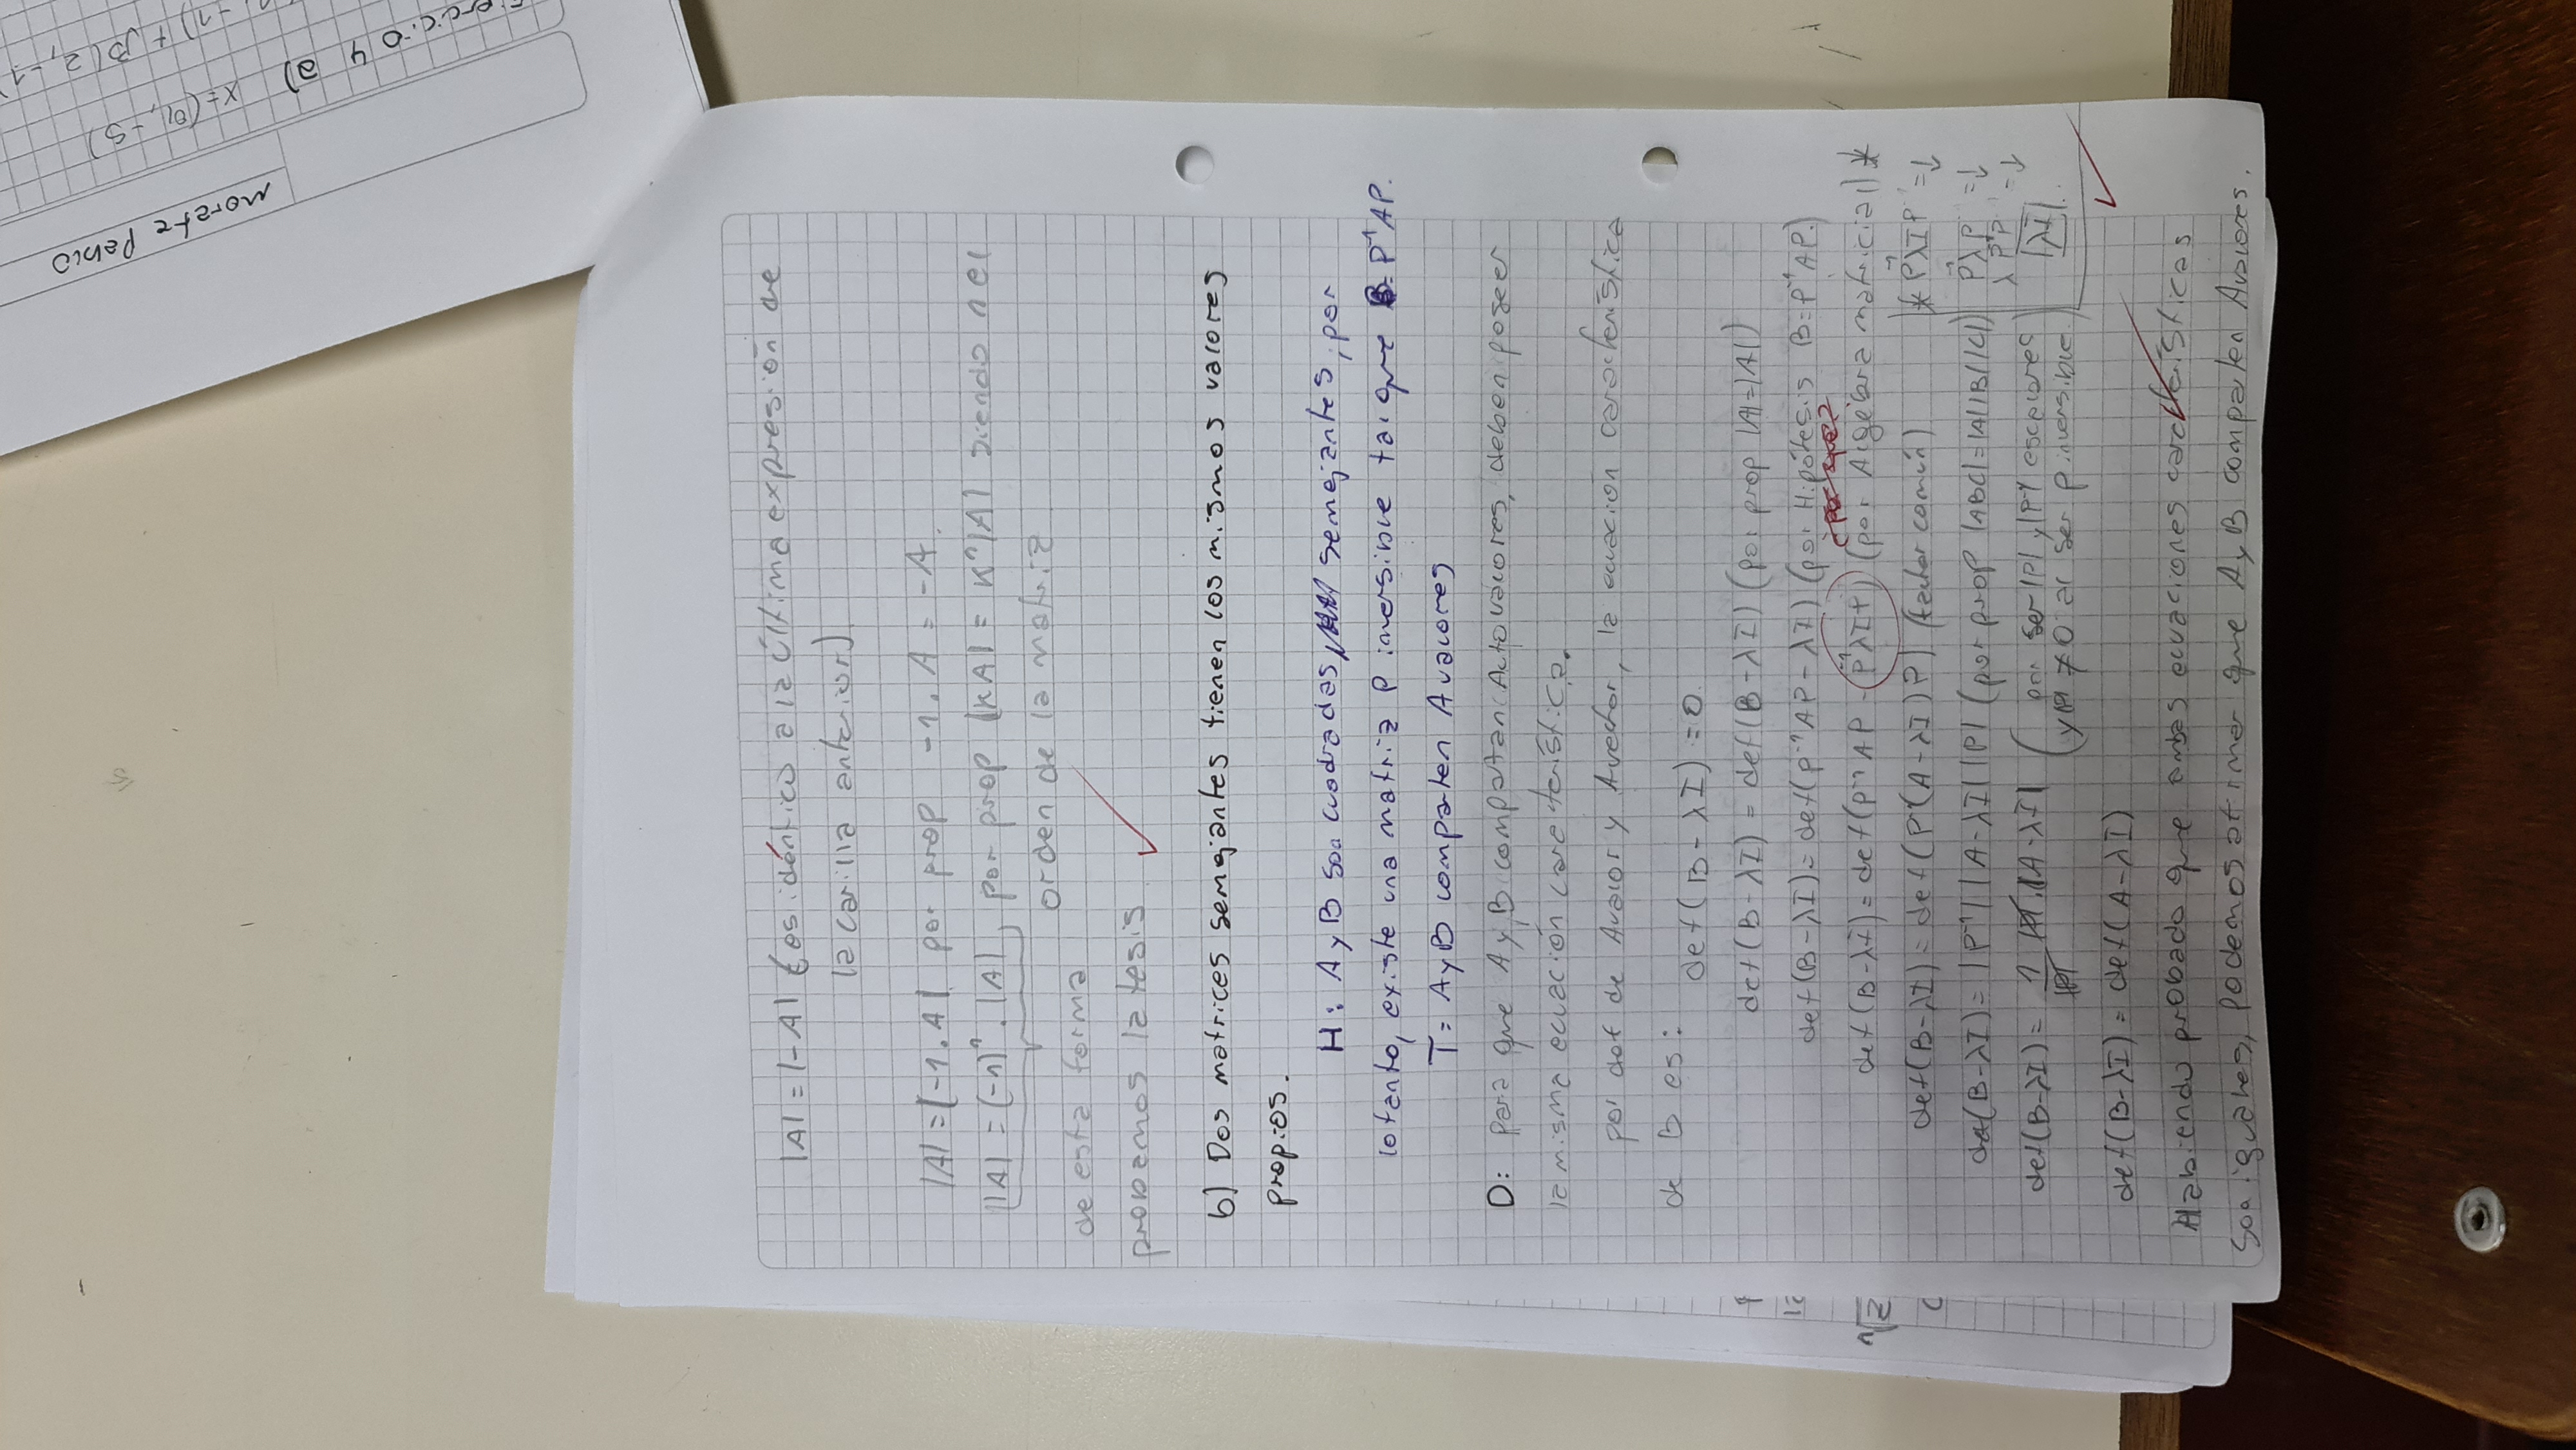 Moratz
X=(
-1) + β(2,-1
4 a)
|A| = |-A| (es idéntico a la última expresión de
la carilla anterior)
|A| = |-1.A| por prop -1.A = -A
|A| = (-1)ⁿ.|A|, por prop |KA| = Kⁿ|A| siendo n el
orden de la matriz
de esta forma
probamos la tesis
b) Dos matrices semejantes tienen los mismos valores
propios.
H: A y B son cuadradas semejantes, por
lo tanto, existe una matriz P inversible tal que B = P⁻¹AP.
T = A y B comparten Avalores
D: para que A y B compartan Autovalores, deben poseer
la misma ecuación característica.
por def de Avalor y Avector, la ecuación característica
de B es:
det(B-λI) = 0
det(B-λI) = det(B-λI) (por prop |A|=|A|)
det(B-λI) = det(P⁻¹AP-λI) (por Hipótesis B=P⁻¹AP)
por que?
det(B-λI) = det(P⁻¹AP - P⁻¹λIP) (por Algebra matricial) *
det(B-λI) = det(P⁻¹(A-λI)P) (factor común)
det(B-λI) = |P⁻¹| |A-λI| |P| (por prop |ABC|=|A||B||C|)
det(B-λI) = 1/|P| |P|.|A-λI| (por ser |P| y |P⁻¹| escalares
y |P| ≠ 0 al ser P inversible)
* P⁻¹λIP = ↓
P⁻¹λP = ↓
λP⁻¹P = ↓
λI
det(B-λI) = det(A-λI)
Habiendo probado que ambas ecuaciones características
son iguales, podemos afirmar que A y B comparten Avalores.